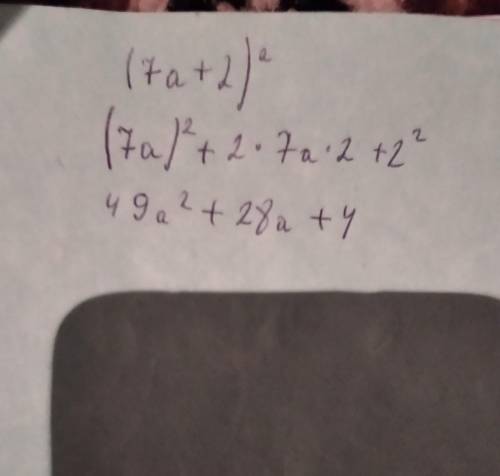 (7a+2)²
(7a)²+2·7a·2+2²
49a²+28a+4